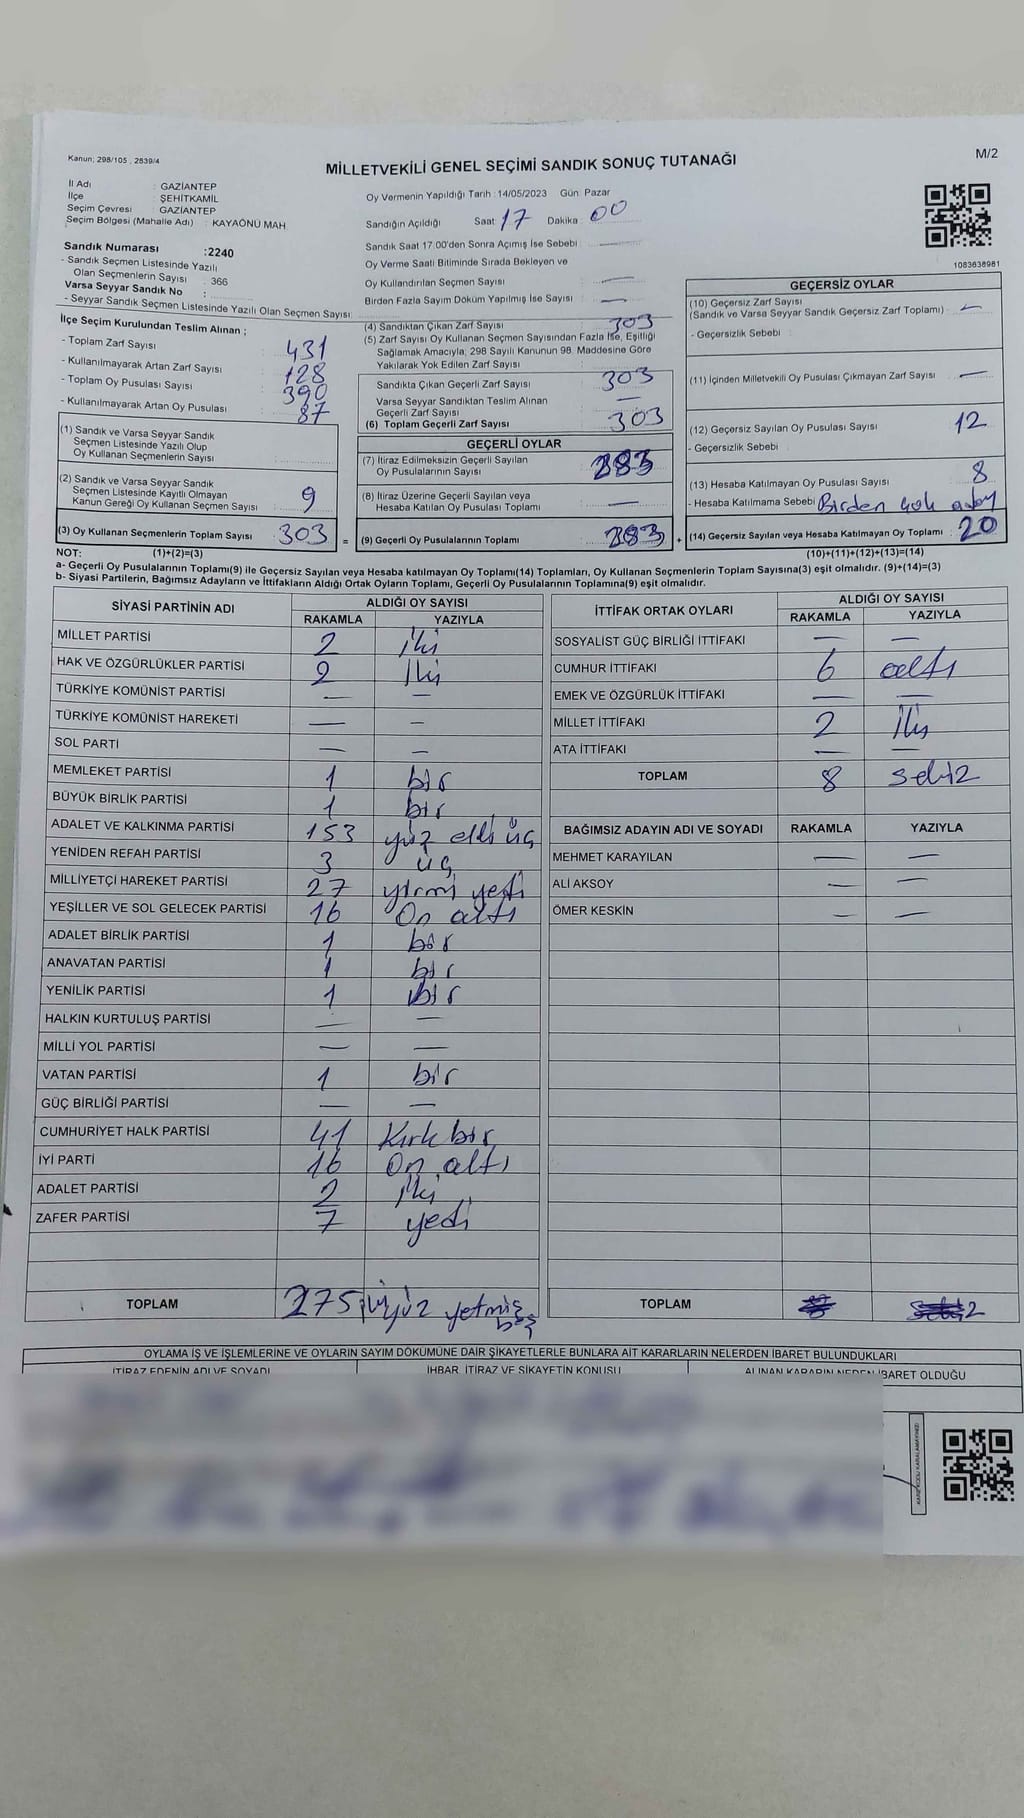 Kanun; 298/105 , 2839/4
MİLLETVEKİLİ GENEL SEÇİMİ SANDIK SONUÇ TUTANAĞI
M/2
İl Adı : GAZİANTEP
İlçe : ŞEHİTKAMİL
Seçim Çevresi : GAZİANTEP
Seçim Bölgesi (Mahalle Adı) : KAYAÖNÜ MAH
Oy Vermenin Yapıldığı Tarih : 14/05/2023 Gün: Pazar
Sandığın Açıldığı Saat: 17 Dakika : 00
Sandık Saat 17:00'den Sonra Açımış İse Sebebi :
Oy Verme Saati Bitiminde Sırada Bekleyen ve
Oy Kullandırılan Seçmen Sayısı : —
Birden Fazla Sayım Döküm Yapılmış İse Sayısı : —
1083638981
Sandık Numarası :2240
- Sandık Seçmen Listesinde Yazılı
Olan Seçmenlerin Sayısı : 366
Varsa Seyyar Sandık No :
- Seyyar Sandık Seçmen Listesinde Yazılı Olan Seçmen Sayısı:
İlçe Seçim Kurulundan Teslim Alınan ;
- Toplam Zarf Sayısı : 431
- Kullanılmayarak Artan Zarf Sayısı : 128
- Toplam Oy Pusulası Sayısı : 390
- Kullanılmayarak Artan Oy Pusulası : 87
(1) Sandık ve Varsa Seyyar Sandık
Seçmen Listesinde Yazılı Olup
Oy Kullanan Seçmenlerin Sayısı :
(2) Sandık ve Varsa Seyyar Sandık
Seçmen Listesinde Kayıtlı Olmayan
Kanun Gereği Oy Kullanan Seçmen Sayısı : 9
(3) Oy Kullanan Seçmenlerin Toplam Sayısı : 303 =
(4) Sandıktan Çıkan Zarf Sayısı : 303
(5) Zarf Sayısı Oy Kullanan Seçmen Sayısından Fazla İse, Eşitliği
Sağlamak Amacıyla, 298 Sayılı Kanunun 98. Maddesine Göre
Yakılarak Yok Edilen Zarf Sayısı :
Sandıkta Çıkan Geçerli Zarf Sayısı : 303
Varsa Seyyar Sandıktan Teslim Alınan
Geçerli Zarf Sayısı : —
(6) Toplam Geçerli Zarf Sayısı : 303
GEÇERLİ OYLAR
(7) İtiraz Edilmeksizin Geçerli Sayılan
Oy Pusulalarının Sayısı : 283
(8) İtiraz Üzerine Geçerli Sayılan veya
Hesaba Katılan Oy Pusulası Toplamı : —
(9) Geçerli Oy Pusulalarının Toplamı : 283 +
GEÇERSİZ OYLAR
(10) Geçersiz Zarf Sayısı
(Sandık ve Varsa Seyyar Sandık Geçersiz Zarf Toplamı) : —
- Geçersizlik Sebebi :
(11) İçinden Milletvekili Oy Pusulası Çıkmayan Zarf Sayısı : —
(12) Geçersiz Sayılan Oy Pusulası Sayısı : 12
- Geçersizlik Sebebi :
(13) Hesaba Katılmayan Oy Pusulası Sayısı : 8
- Hesaba Katılmama Sebebi : Birden çok
(14) Geçersiz Sayılan veya Hesaba Katılmayan Oy Toplamı : 20
NOT: (1)+(2)=(3) (10)+(11)+(12)+(13)=(14)
a- Geçerli Oy Pusulalarının Toplamı(9) ile Geçersiz Sayılan veya Hesaba katılmayan Oy Toplamı(14) Toplamları, Oy Kullanan Seçmenlerin Toplam Sayısına(3) eşit olmalıdır. (9)+(14)=(3)
b- Siyasi Partilerin, Bağımsız Adayların ve İttifakların Aldığı Ortak Oyların Toplamı, Geçerli Oy Pusulalarının Toplamına(9) eşit olmalıdır.
SİYASİ PARTİNİN ADI ALDIĞI OY SAYISI
RAKAMLA YAZIYLA
MİLLET PARTİSİ 2 iki
HAK VE ÖZGÜRLÜKLER PARTİSİ 2 iki
TÜRKİYE KOMÜNİST PARTİSİ — —
TÜRKİYE KOMÜNİST HAREKETİ — —
SOL PARTİ — —
MEMLEKET PARTİSİ 1 bir
BÜYÜK BİRLİK PARTİSİ 1 bir
ADALET VE KALKINMA PARTİSİ 153 yüz elli üç
YENİDEN REFAH PARTİSİ 3 üç
MİLLİYETÇİ HAREKET PARTİSİ 27 yirmi yedi
YEŞİLLER VE SOL GELECEK PARTİSİ 16 On altı
ADALET BİRLİK PARTİSİ 1 bir
ANAVATAN PARTİSİ 1 bir
YENİLİK PARTİSİ 1 bir
HALKIN KURTULUŞ PARTİSİ — —
MİLLİ YOL PARTİSİ — —
VATAN PARTİSİ 1 bir
GÜÇ BİRLİĞİ PARTİSİ — —
CUMHURİYET HALK PARTİSİ 41 Kırk bir
İYİ PARTİ 16 On altı
ADALET PARTİSİ 2 iki
ZAFER PARTİSİ 7 yedi
TOPLAM 275 yetmiş
beş
İTTİFAK ORTAK OYLARI ALDIĞI OY SAYISI
RAKAMLA YAZIYLA
SOSYALİST GÜÇ BİRLİĞİ İTTİFAKI — —
CUMHUR İTTİFAKI 6 altı
EMEK VE ÖZGÜRLÜK İTTİFAKI — —
MİLLET İTTİFAKI 2 iki
ATA İTTİFAKI — —
TOPLAM 8 sekiz
BAĞIMSIZ ADAYIN ADI VE SOYADI RAKAMLA YAZIYLA
MEHMET KARAYILAN — —
ALİ AKSOY — —
ÖMER KESKİN — —
TOPLAM
OYLAMA İŞ VE İŞLEMLERİNE VE OYLARIN SAYIM DÖKÜMÜNE DAİR ŞİKAYETLERLE BUNLARA AİT KARARLARIN NELERDEN İBARET BULUNDUKLARI
İTİRAZ EDENİN ADI VE SOYADI İHBAR, İTİRAZ VE ŞİKAYETİN KONUSU ALINAN KARARIN NEDEN İBARET OLDUĞU